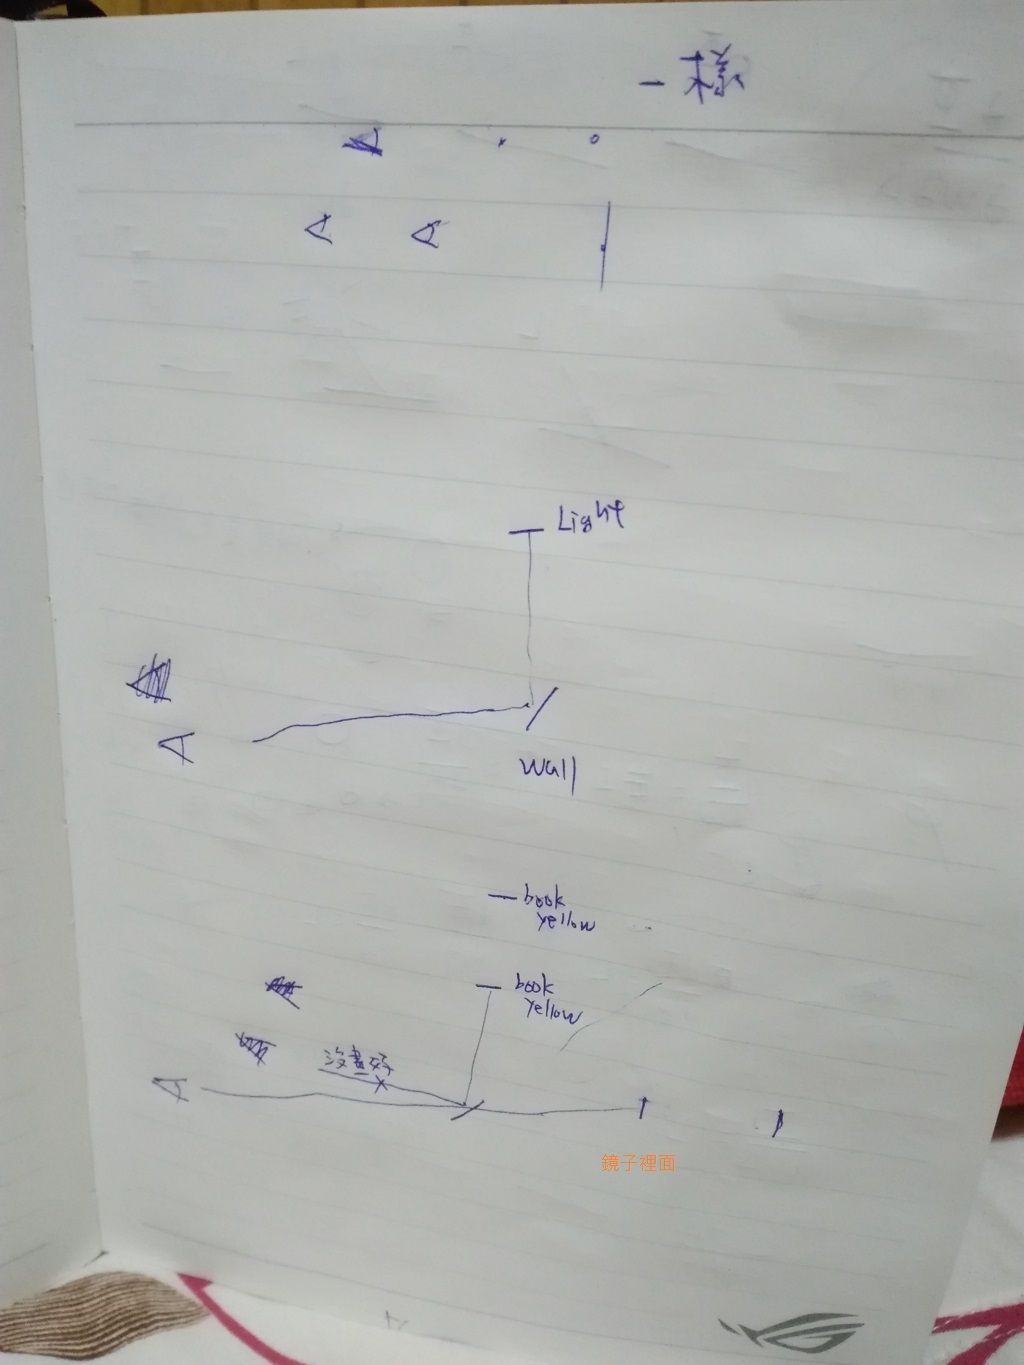 一樣
Light
Wall
book
yellow
book
yellow
沒畫好
鏡子裡面